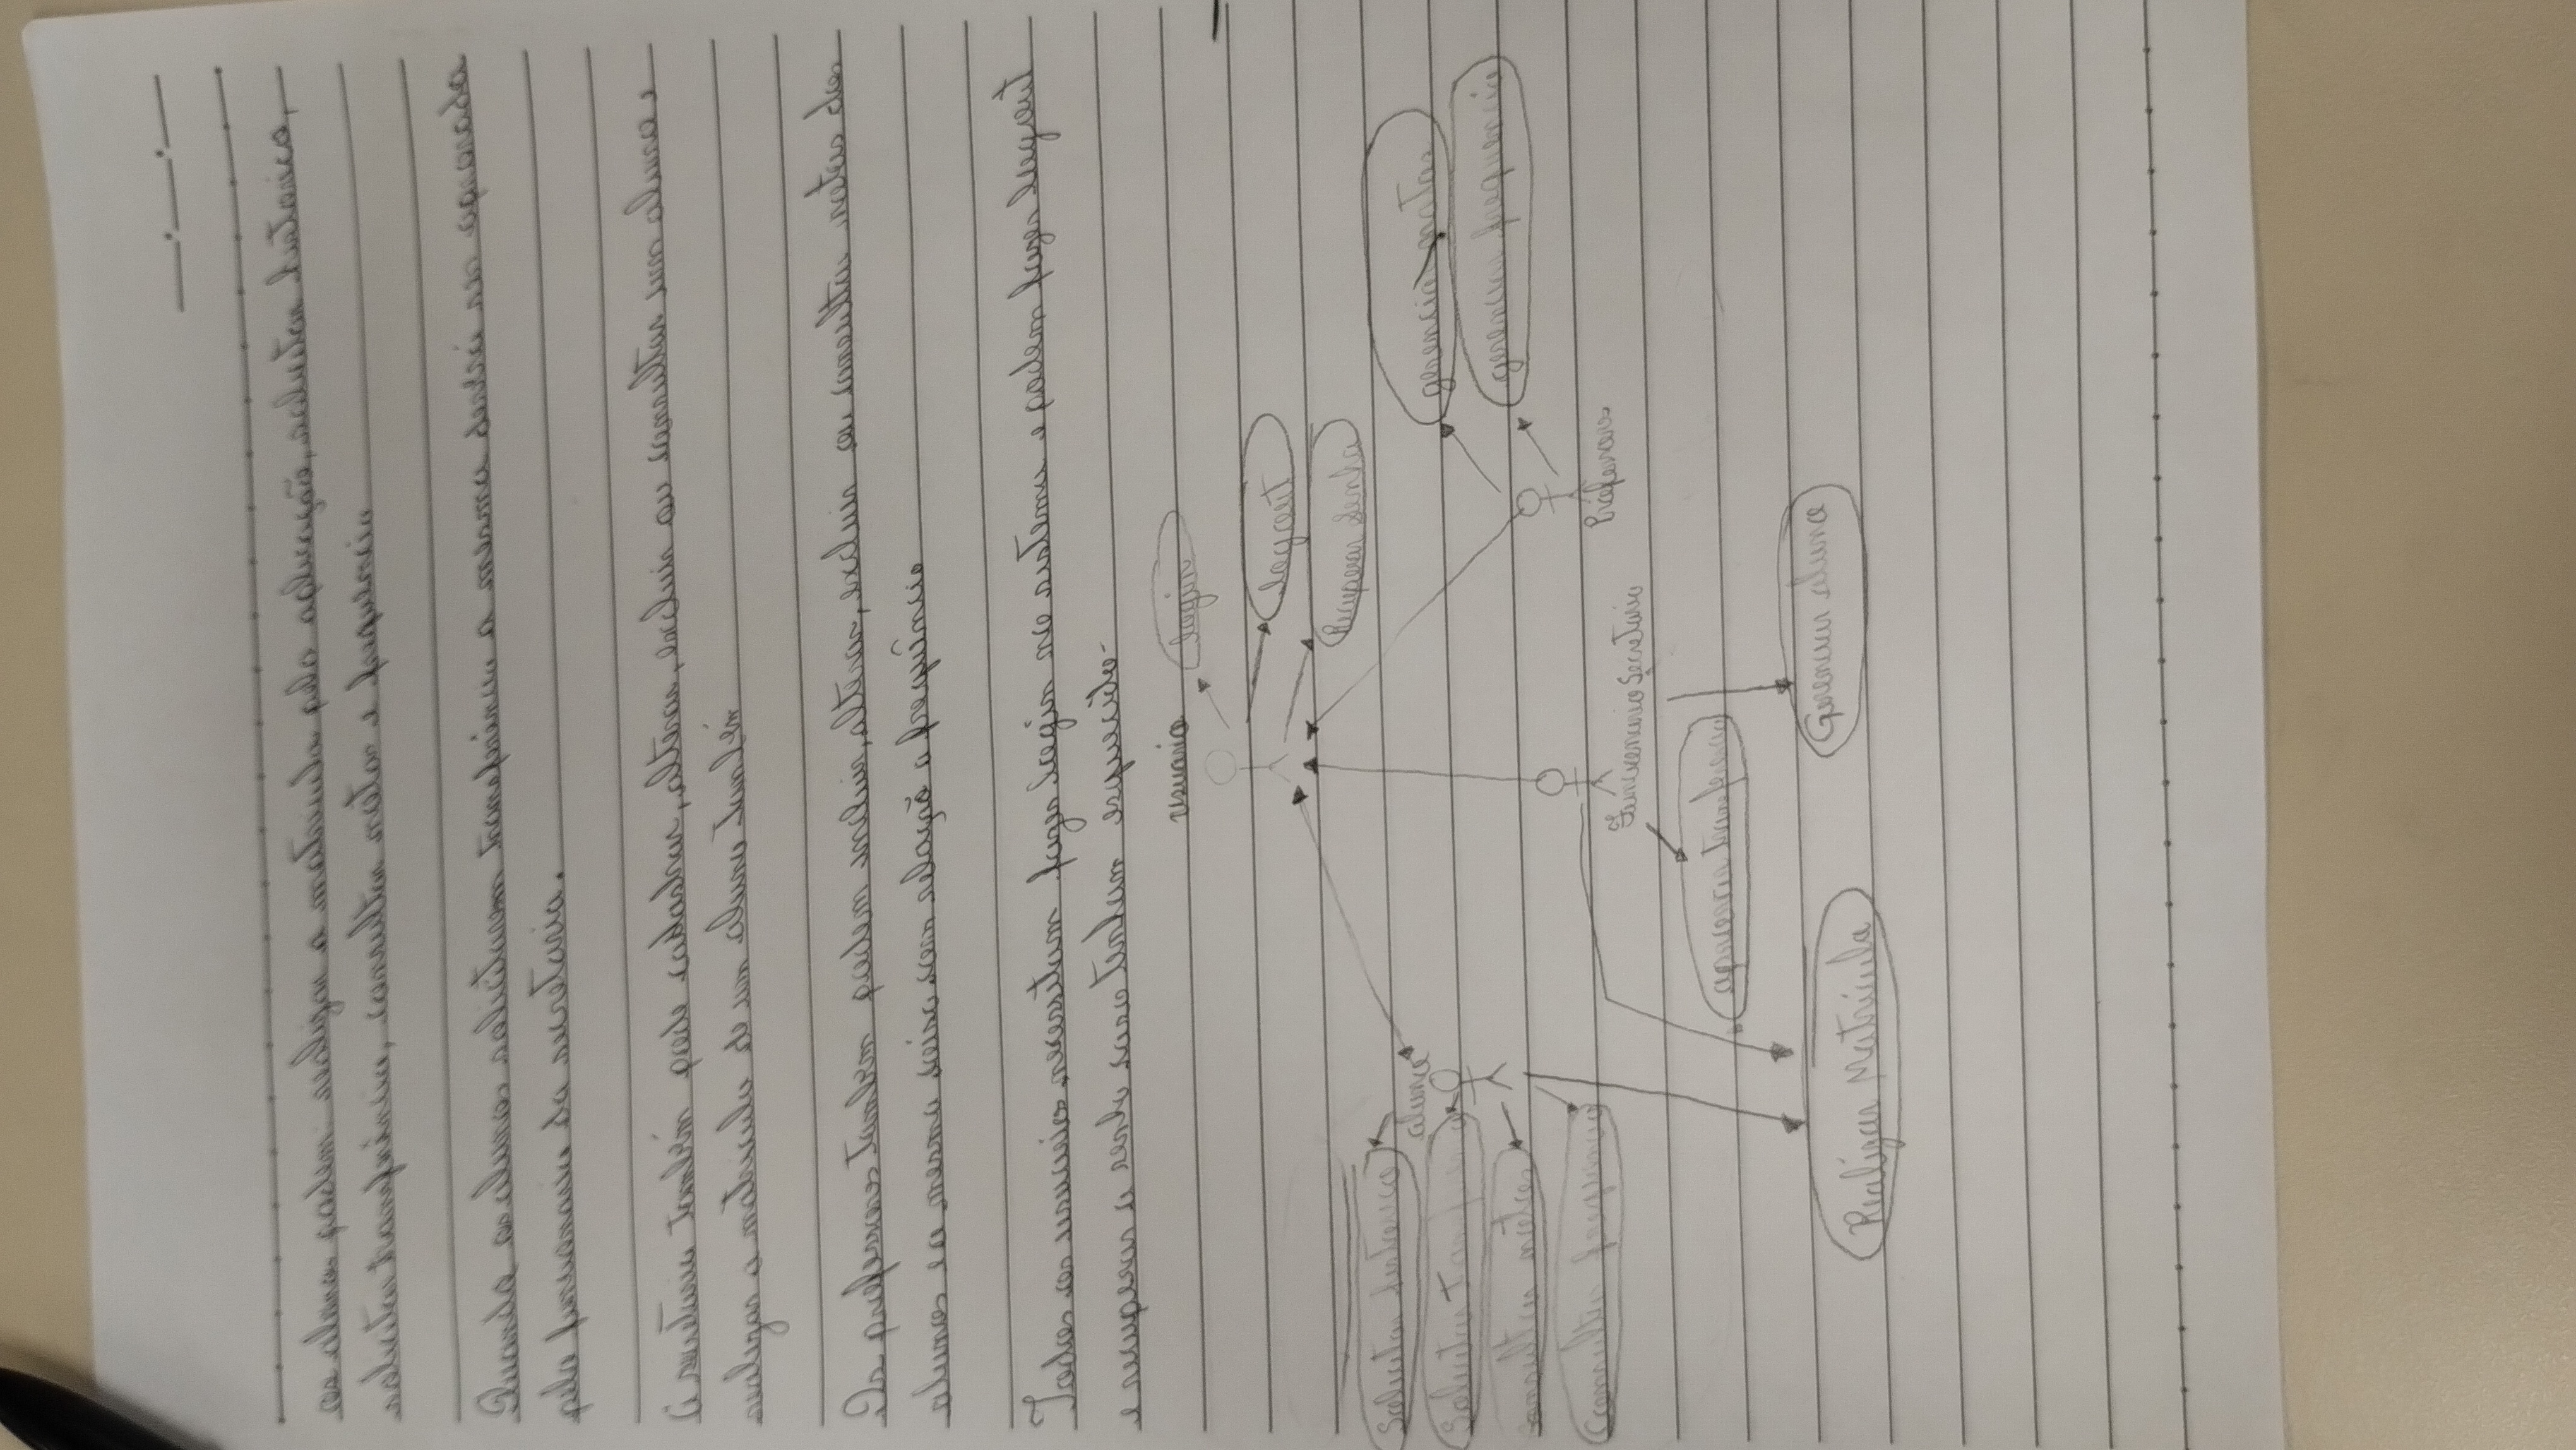 os alunos podem realizar a matricula pela aplicação, solicitar historico,
solicitar transferência, consultar notas e frequencia
Quando os alunos solicitarem transferência a mesma deverá ser aprovada
pelo funcionario da secretaria.
A secretaria também pode cadastrar, alterar, excluir ou consultar um aluno e
realizar a matricula de um aluno também
Os professores também podem incluir, alterar, excluir ou consultar notas dos
alunos e a mesma coisa com relação a frequência
Todos os usuarios necessitam fazer login no sistema e podem fazer logout
e recuperar a senha caso tenham esquecido
usuario
login
logout
Recuperar Senha
Solicitar historico
aluno
gerenciar notas
Solicitar Transferencia
gerenciar frequencia
consultar notas
Consultar frequencia
Professores
Funcionario Secretaria
aprovar transferencia
Gerenciar aluno
Realizar Matricula